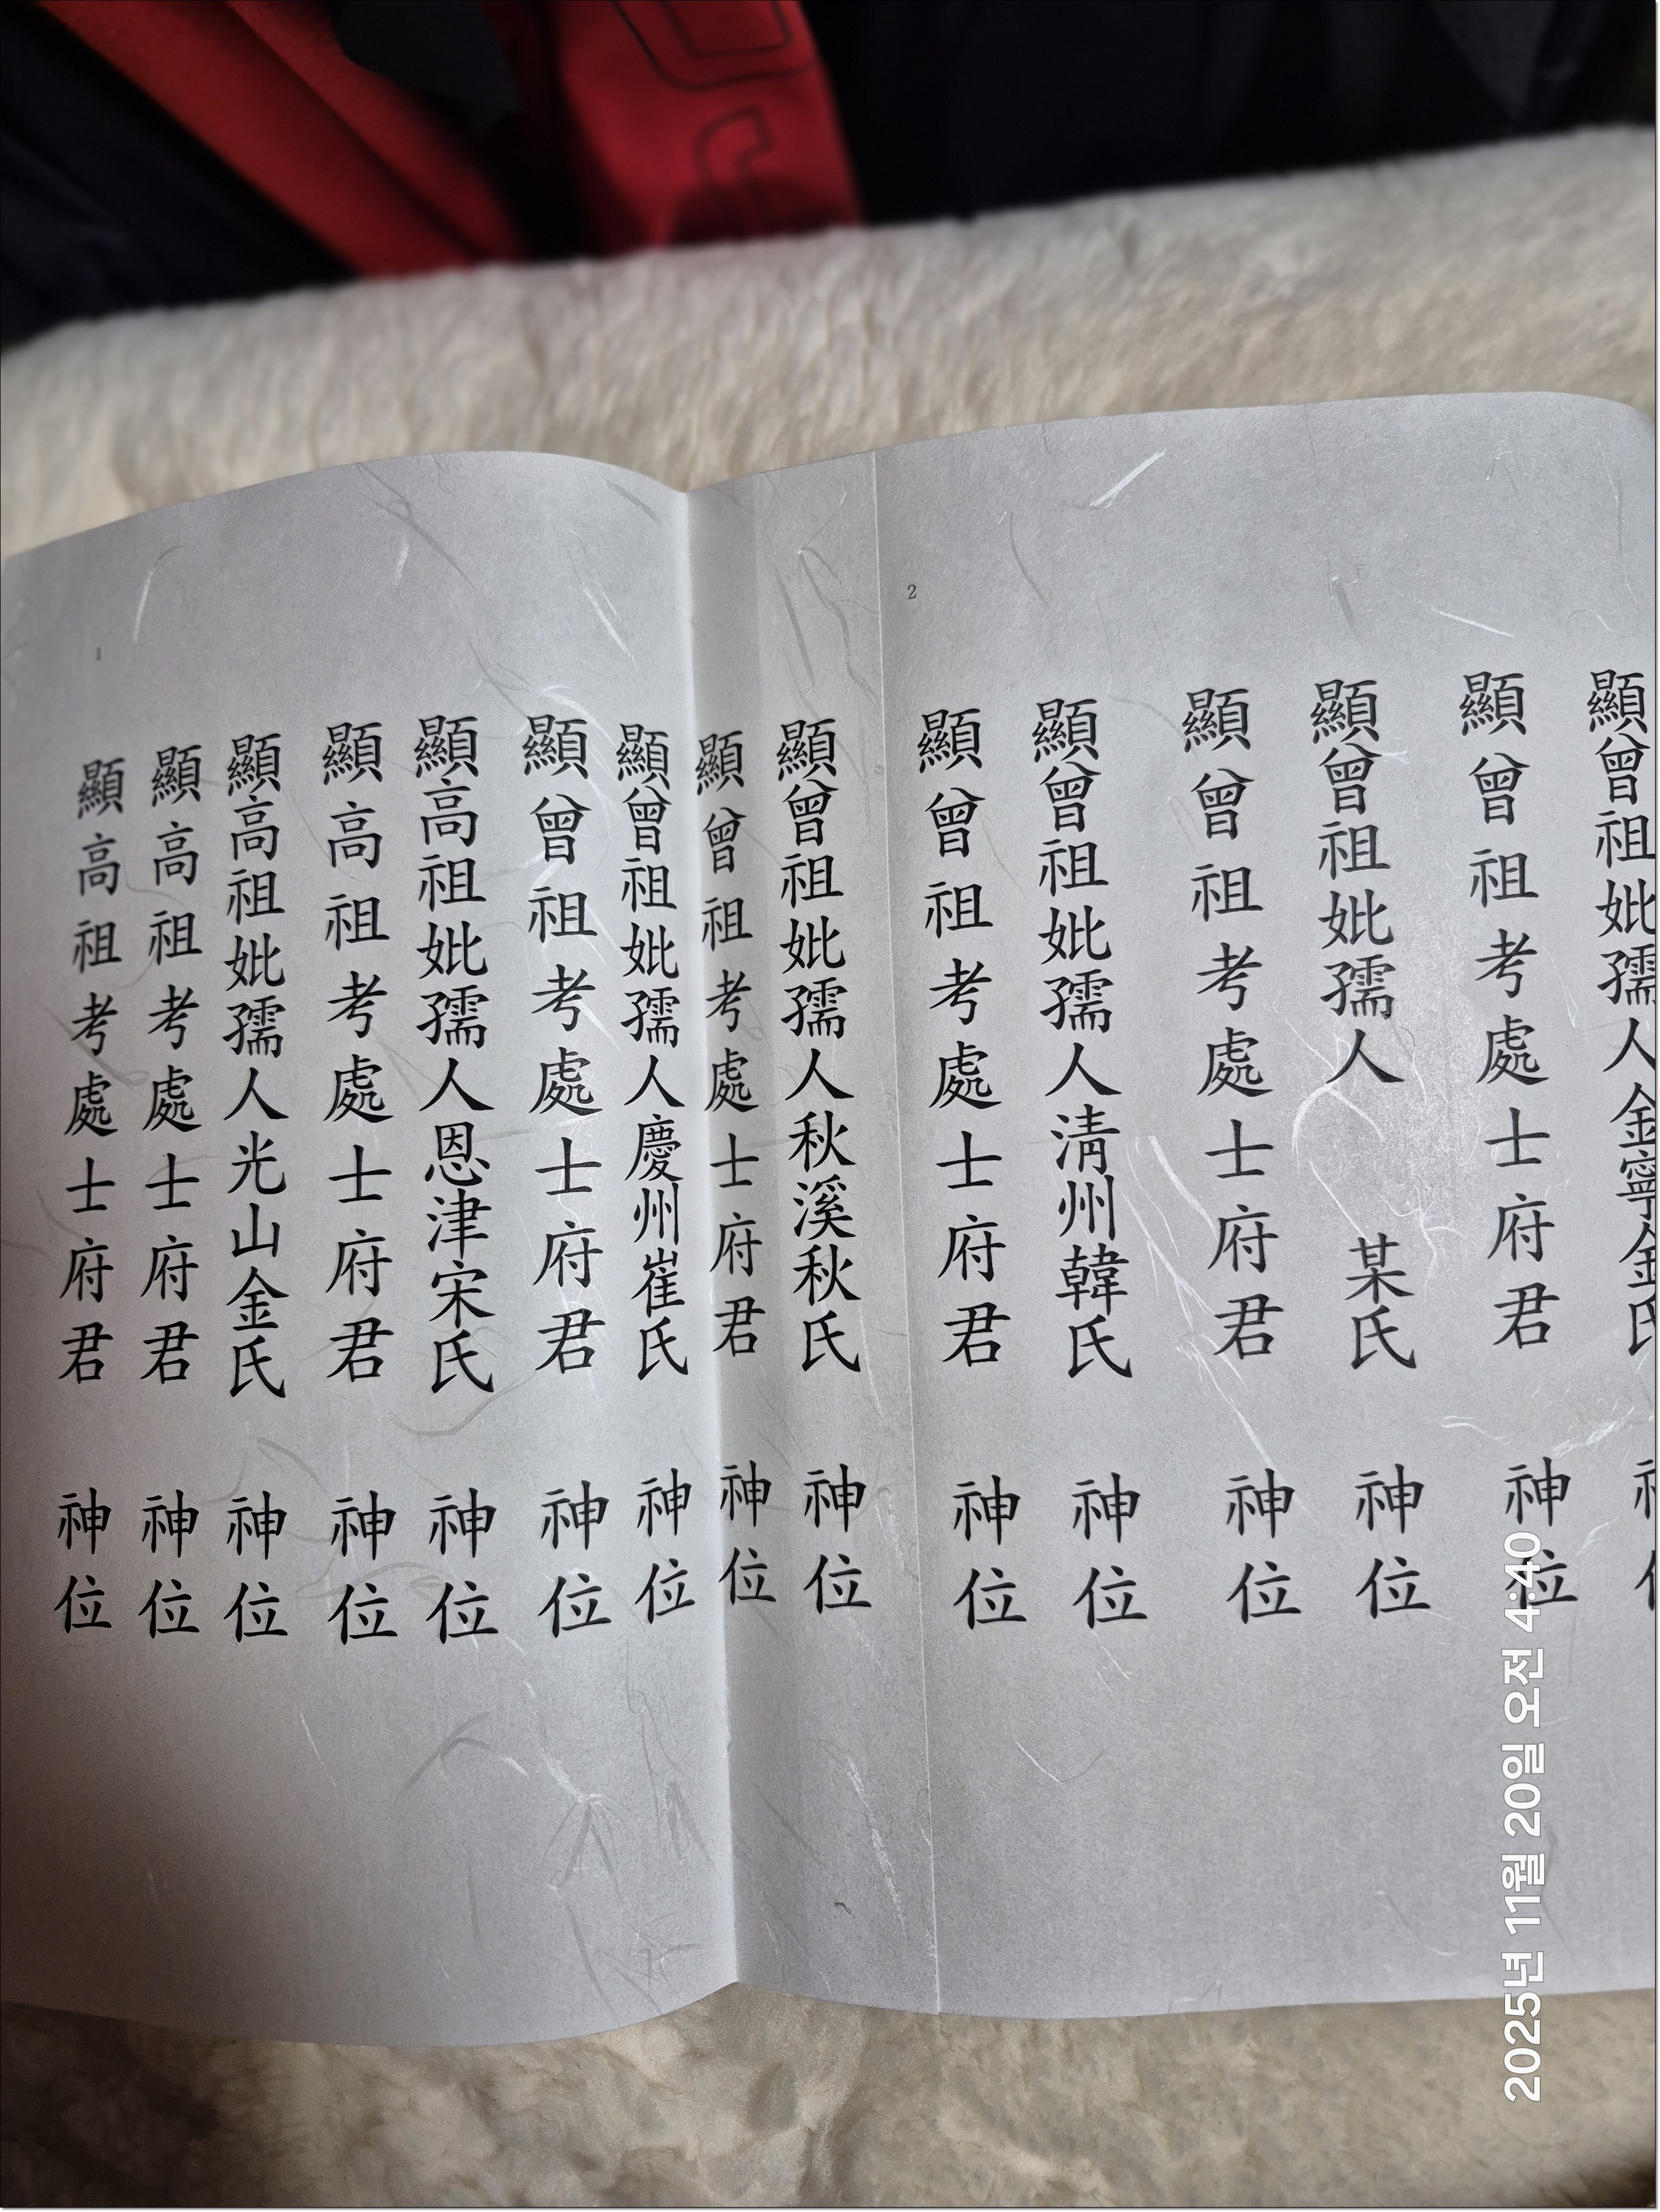 1
顯高祖考處士府君 神位
顯高祖考處士府君 神位
顯高祖妣孺人光山金氏 神位
顯高祖考處士府君 神位
顯高祖妣孺人恩津宋氏 神位
顯曾祖考處士府君 神位
顯曾祖妣孺人慶州崔氏 神位
顯曾祖考處士府君 神位
顯曾祖妣孺人秋溪秋氏 神位
2
顯曾祖考處士府君 神位
顯曾祖妣孺人淸州韓氏 神位
顯曾祖考處士府君 神位
顯曾祖妣孺人 某氏 神位
顯曾祖考處士府君 神位
顯曾祖妣孺人金寧金氏
2025년 11월 20일 오전 4:40